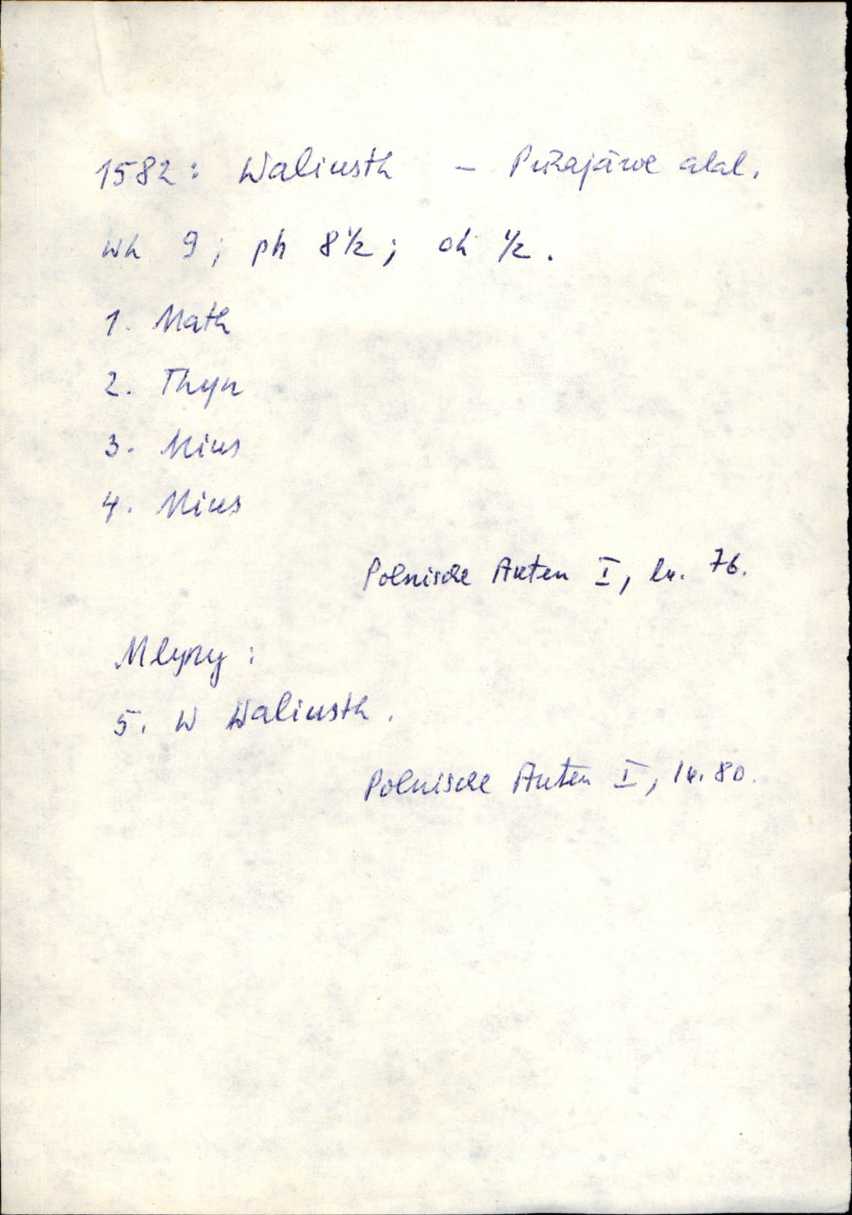 1582: Waliusth – Pühajärve alal.
wh 9; ph 8 1/2; oh 1/2.
1. Math
2. Thyn
3. Nius
4. Nius
Polnische Akten I, lk. 76.
Mlyny:
5. W Waliusth.
Polnische Akten I, lk. 80.